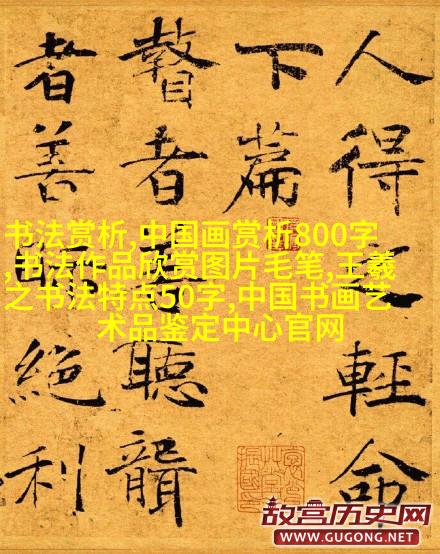 人得之輕命
下篇
瞽者善聽聾
者善視絕利
书法赏析,中国画赏析800字
,书法作品欣赏图片毛笔,王羲
之书法特点50字,中国书画艺
术品鉴定中心官网
故宫历史网
WWW.GUGONG.NET